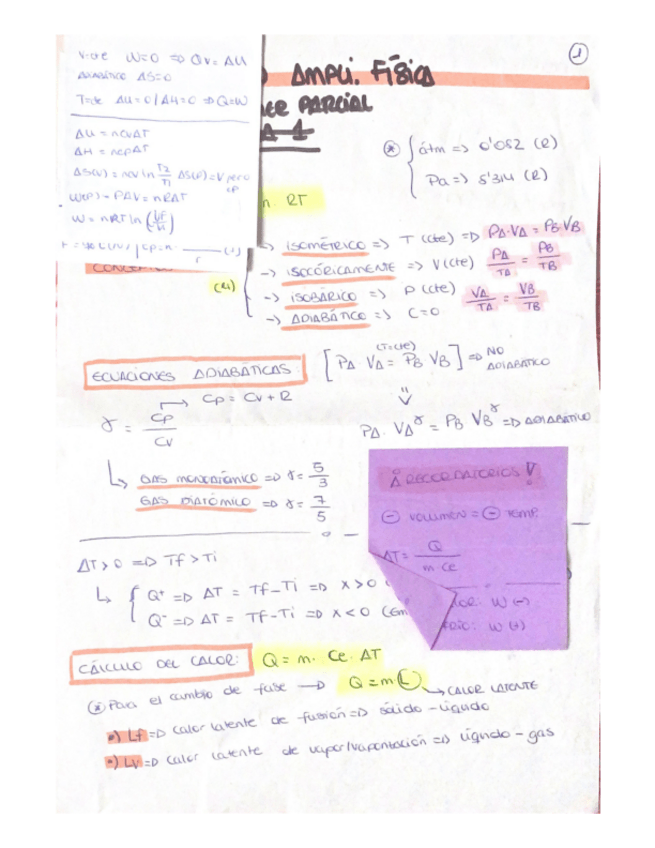 V=cte W=0 => Qv = ΔU
ADIABÁTICO ΔS=0
T=cte ΔU=0 / ΔH=0 => Q=W
ΔU = ncvΔT
ΔH = ncpΔT
ΔS(v) = ncv ln T2/T1 ΔS(P)=
W(P) = PΔV = nRΔT
W = nRT ln (Vf/Vi)
1
AMPLI. FÍSICA
PARCIAL
1
* { átm => 0'082 (R)
Pa => 8'314 (R)
n. RT
(Ri)
-> ISOMÉTRICO => T (cte) => PA·VA = PB·VB
-> ISOCÓRICAMENTE => V (cte) PA/TA = PB/TB
-> ISOBÁRICO => P (cte) VA/TA = VB/TB
-> ADIABÁTICO => C=0
ECUACIONES ADIABÁTICAS:
(T=cte)
[PA· VA = PB VB] => NO ADIABÁTICO
γ = Cp/Cv
-> Cp = Cv + R
PA· VA^γ = PB VB^γ => ADIABÁTICO
GAS MONOATÓMICO => γ = 5/3
GAS DIATÓMICO => γ = 7/5
¡ RECORDATORIOS !
⊖ VOLUMEN = ⊖ TEMP.
ΔT = Q/m·ce
W (-)
W (+)
ΔT > 0 => Tf > Ti
{ Q⁺ => ΔT = Tf - Ti => X > 0
Q⁻ => ΔT = Tf - Ti => X < 0
CÁLCULO DEL CALOR: Q = m· Ce· ΔT
(*) Para el cambio de fase -> Q = m·L -> CALOR LATENTE
•) Lf => Calor latente de fusión => sólido - líquido
•) Lv => Calor latente de => líquido - gas